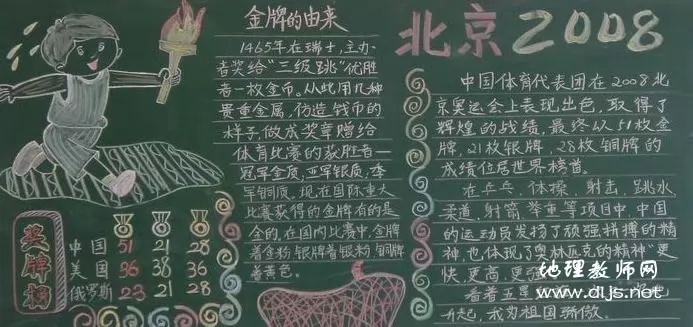 金牌的由来
1465年在瑞士,主办
者奖给"三级跳"优胜
者一枚金币。从此用几种
贵重金属,仿造钱币的
样子做成奖章赠给
体育比赛的获胜者—
冠军金质,亚军银质,季
军铜质。现在国际重大
比赛获得的金牌有的是
全的,在国内比赛中,金牌
着金粉,银牌着银粉,铜牌
着黄色。
北京2008
中国体育代表团在2008北
京奥运会上表现出色,取得了
辉煌的战绩,最终以51枚金
牌,21枚银牌,28枚铜牌的
成绩位居世界榜首。
在乒乓,体操,射击,跳水
柔道,射箭,举重等项目中,中国
的运动员发扬了顽强拼搏的精
神,也体现了奥林匹克的精神"更
快,更高,更强
看着五星
升起,我为祖国骄傲。
奖牌榜
中国 51 21 28
美国 36 38 36
俄罗斯 23 21 28
地理教师网
www.dljs.net